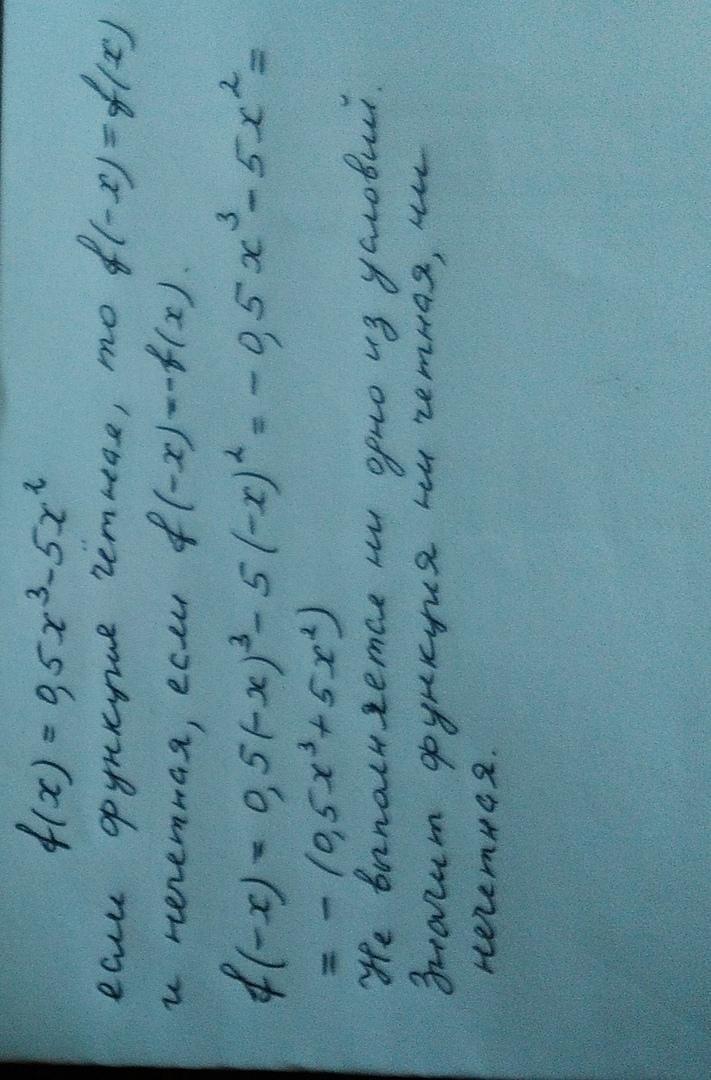 f(x) = 0,5x³-5x²
если функция чётная, то f(-x) = f(x)
и нечетная, если f(-x) = -f(x).
f(-x) = 0,5(-x)³ - 5(-x)² = -0,5x³ - 5x² =
= -(0,5x³ + 5x²)
Не выполняется ни одно из условий.
Значит функция ни четная, ни
нечетная.